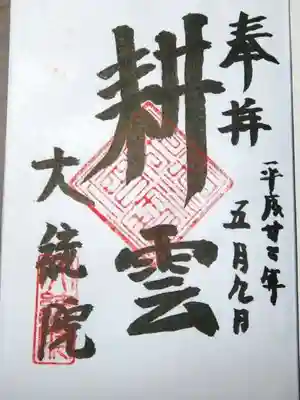 奉拝
平成廿三年
五月九日
耕雲
大統院